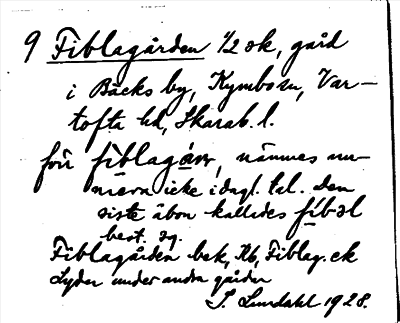 9 Fiblagården 1/2 sk, gård
i Bäcks by, Kymbo sn, Var-
tofta hd, Skarab. l.
fiblagárn, nämnes nu-
mera icke i dagl. tal. Den
siste åbon kallades fíbəl
best. sg.
Fiblagården bek, Kb, Fiblag. ek
Lyder under andra gården
S. Lundahl 1928.